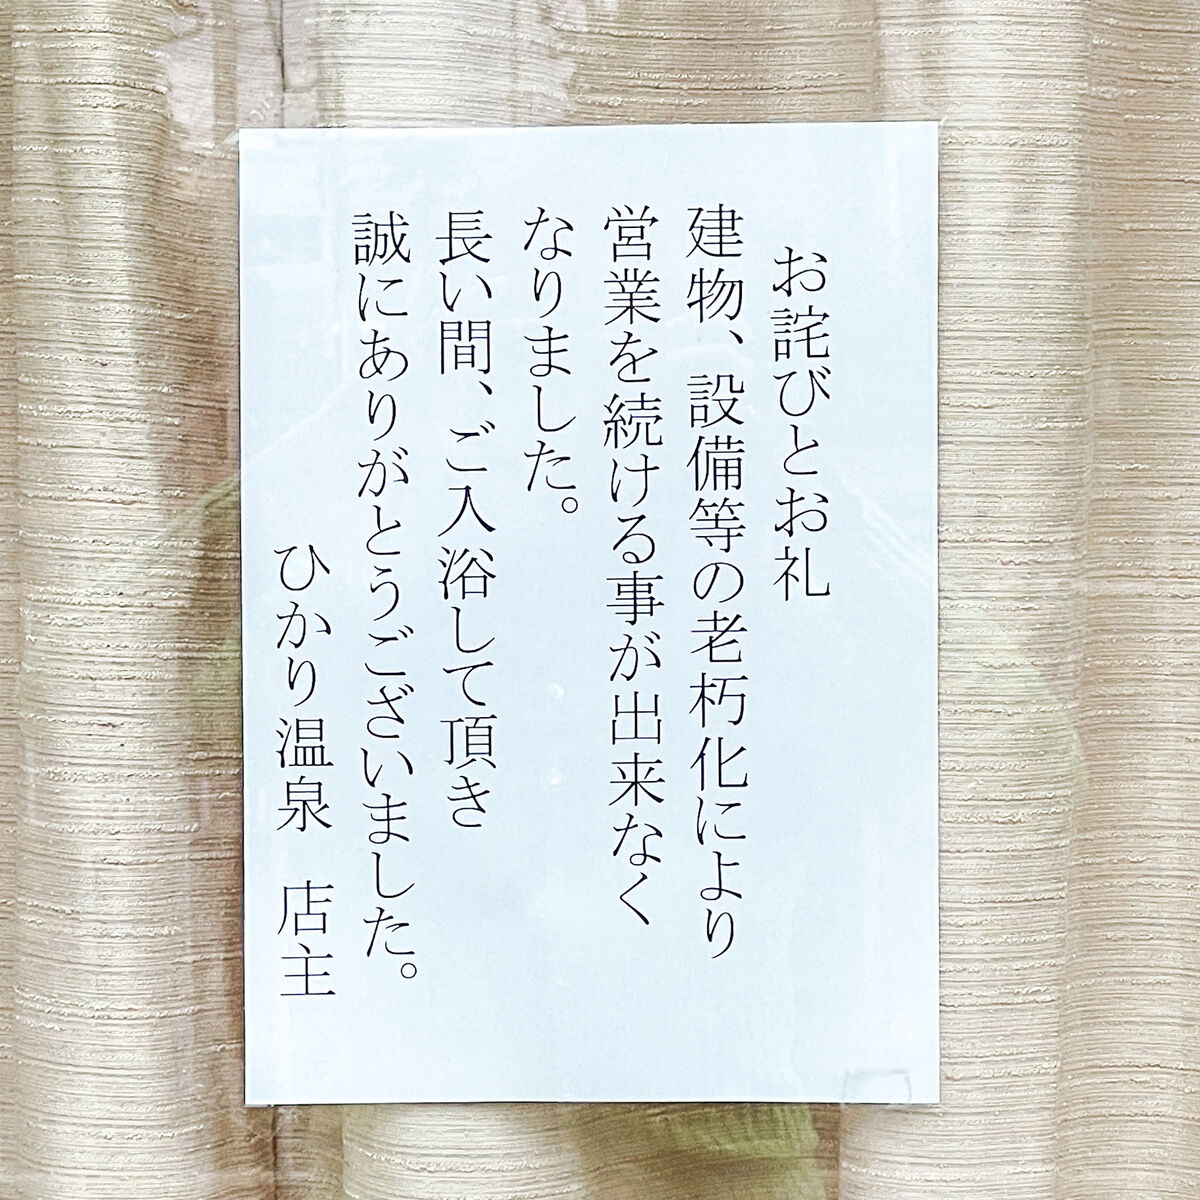 お詫びとお礼
建物、設備等の老朽化により
営業を続ける事が出来なく
なりました。
長い間、ご入浴して頂き
誠にありがとうございました。
ひかり温泉 店主